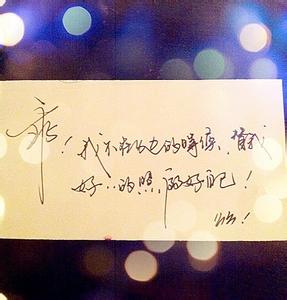 乖！我不在身边的时候，替我
好好的照顾好自己！